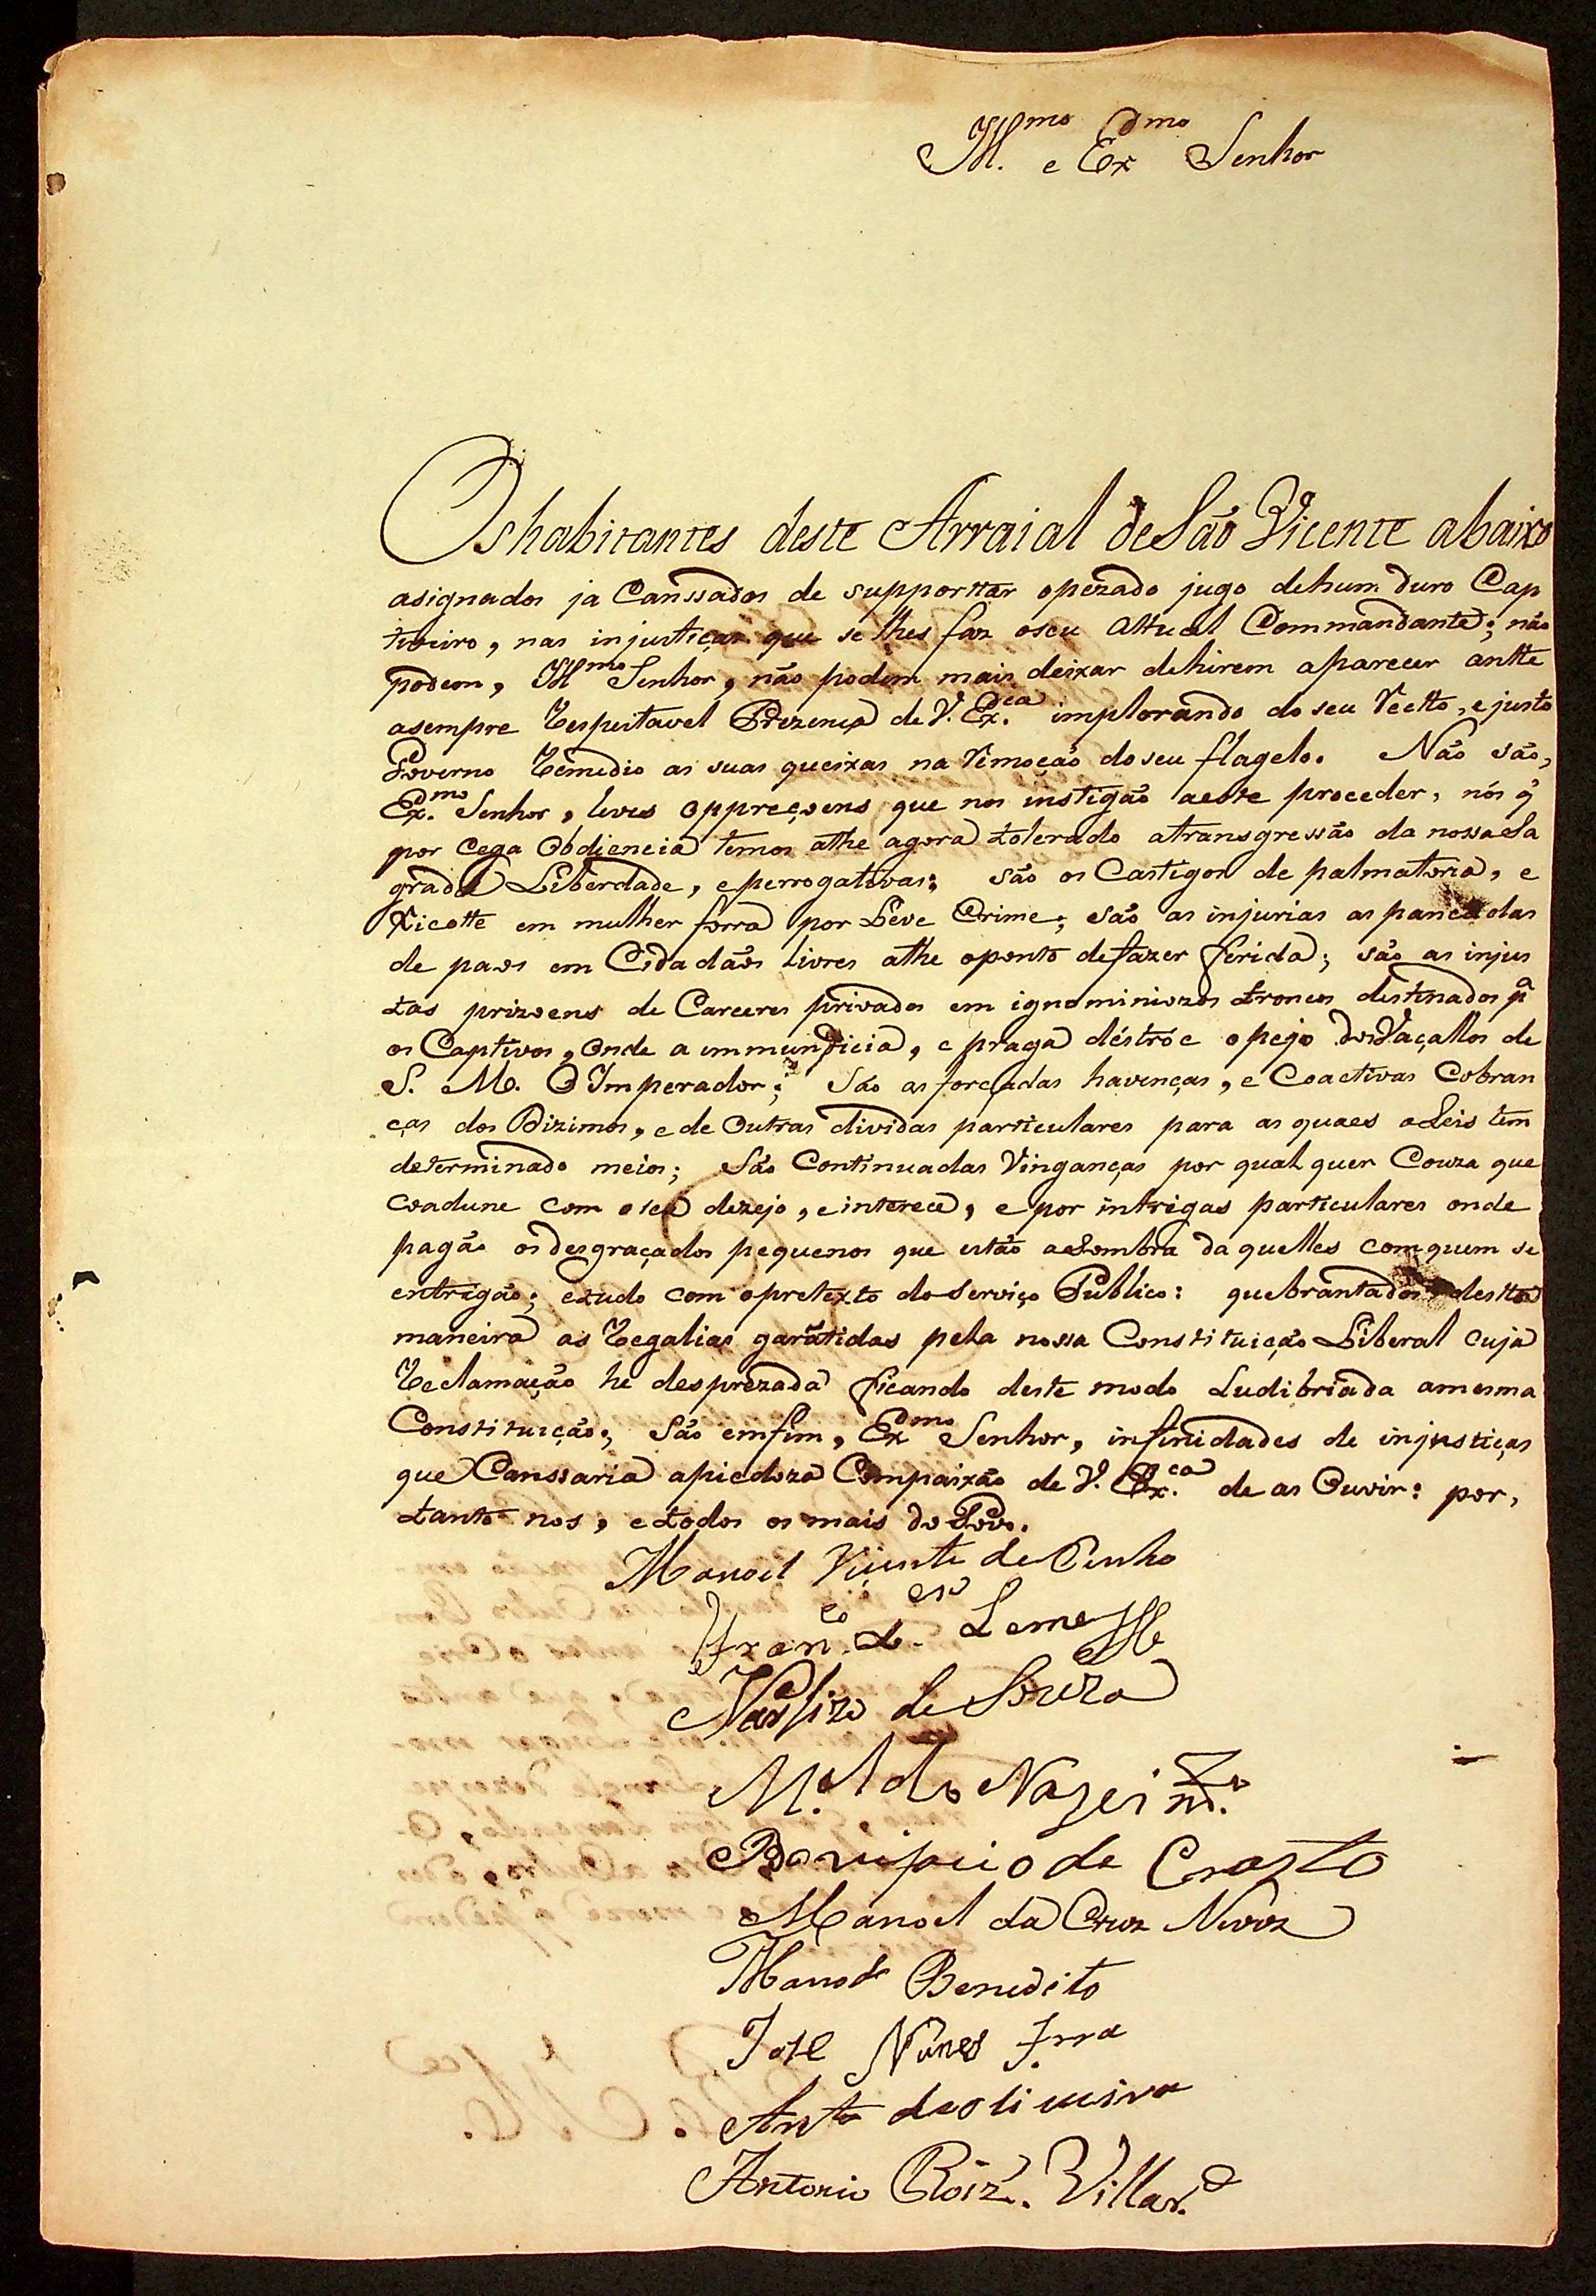 Ill.mo e Ex.mo Senhor
Os habitantes deste Arraial de São Vicente abaixo
asignados ja Canssados de supporttar opezado jugo dehum duro Cap
tiveiro, nas injustiças que se lhes faz oseu Attual Commandante; não
podem, Ill.mo Senhor, não podem mais deixar dehirem aparecer antte
asempre Respeitavel Prezença de V. Ex.ca implorando do seu Recto, e justo
Governo Remedio as suas queixas na Remoção do seu flagelo. Não são,
Ex.mo Senhor, leves oppreçoens que nos instigão aeste proceder, nós q̃
por cega Obdiencia temos athe agora tolerado atransgressão da nossa Sa
grada Liberdade, e perrogativas; são os Castigos de palmatoria, e
Xicotte em mulher forra por Leve Crime; são as injurias as pancadas
de paos em Cidadãos livres athe oponto de fazer ferida; são as injus
tas prizoens de Carceres privados em ignominiozos troncos destinados p.a
os Captivos, Onde a immundicia, e praga déstróe opejo dos Vaçallos de
S. M. O Imperador; São as forçadas havenças, e Coactivas Cobran
ças dos Dizimos, e de Outras dividas particulares para as quaes a Leis tem
determinado meios; São Continuadas Vinganças por qual quer Couza que
coadune com o seu dezejo, e interece, e por intrigas particulares onde
pagão os desgraçados pequenos que estão a Sombra da quelles com quem se
entrigão; etudo com opretexto do serviço Publico: quebrantados destta
maneira as Regalias garãtidas pela nossa Constituição Liberal cuja
Reclamação he desprezada ficando deste modo Ludibriada amesma
Constituição; São emfim, Ex.mo Senhor, infinidades de injustiças
que Canssaria apiedoza Compaixão de V. Ex.ca de as Ouvir: por,
tanto nos, e todos os mais do Povo.
Manoel Viçente de Pinho
Fran.co Leme
de Souza
M.el do Nascim.to
Bonifacio de Crasto
Manoel da Cruz
Manoel Benedito
José Nunes Frra
Anto deoliueira
Antonio Roiz. Villar.